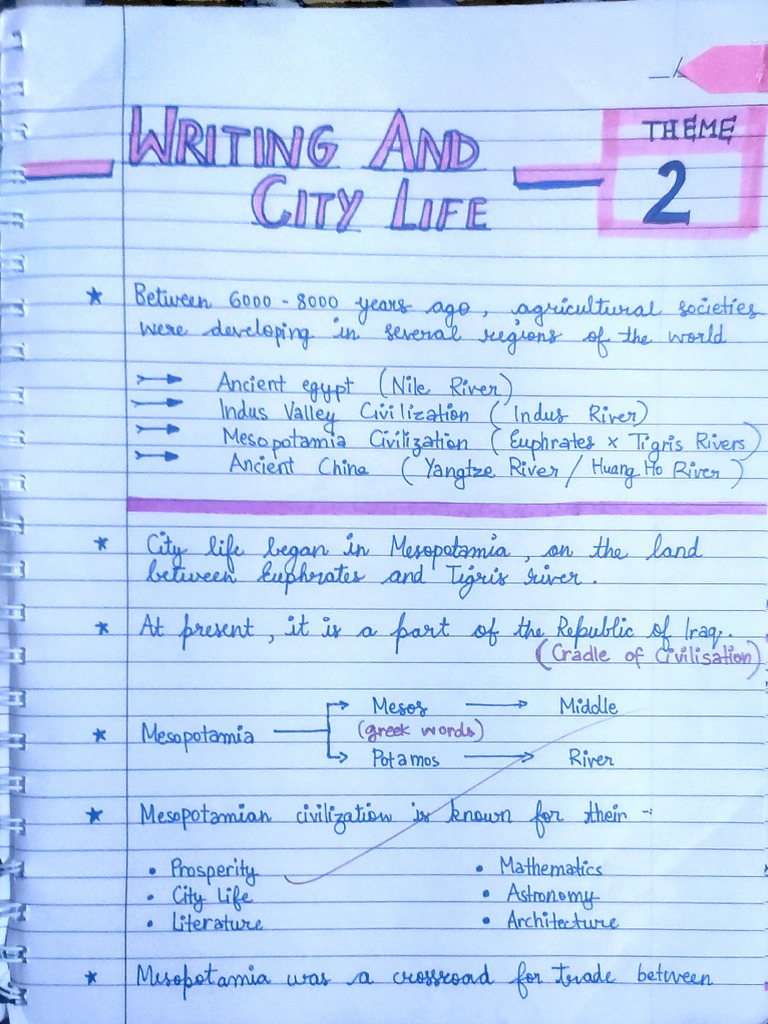 WRITING AND
CITY LIFE
THEME
2
★ Between 6000 - 8000 years ago, agricultural societies
were developing in several regions of the world
Ancient egypt (Nile River)
Indus Valley Civilization (Indus River)
Mesopotamia Civilization (Euphrates x Tigris Rivers)
Ancient China (Yangtze River / Huang Ho River)
★ City life began in Mesopotamia, on the land
between Euphrates and Tigris river.
★ At present, it is a part of the Republic of Iraq.
(Cradle of Civilisation)
★ Mesopotamia → Mesos → Middle
(greek words)
→ Potamos → River
★ Mesopotamian civilization is known for their -:
• Prosperity • Mathematics
• City Life • Astronomy
• Literature • Architecture
★ Mesopotamia was a crossroad for trade between